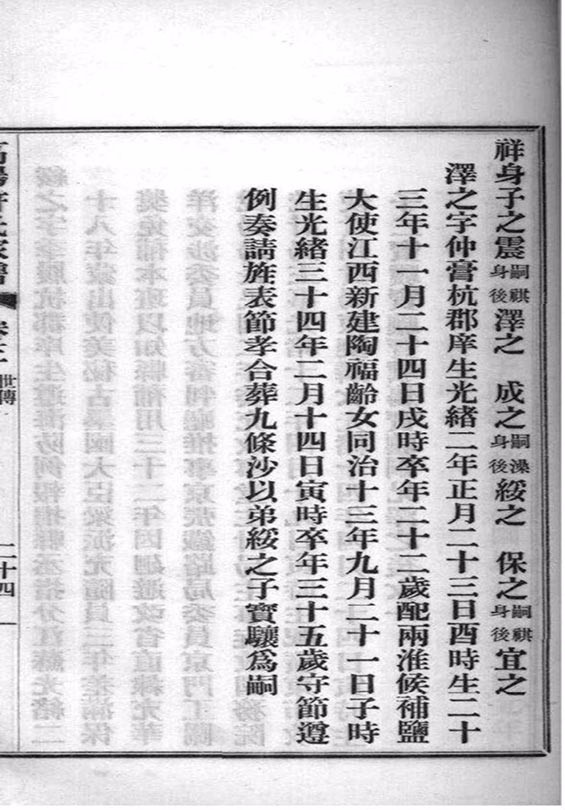 祥身子之震嗣祺身後澤之　成之嗣澡身後綏之　保之嗣祺身後宜之
澤之字仲膏杭郡庠生光緒二年正月二十三日酉時生二十
三年十一月二十四日戌時卒年二十二歲配兩淮候補鹽
大使江西新建陶福齡女同治十三年九月二十一日子時
生光緒三十四年二月十四日寅時卒年三十五歲守節遵
例奏請旌表節孝合葬九條沙以弟綏之子寶驤爲嗣
高陽許氏家譜　卷二　世傳　二十四